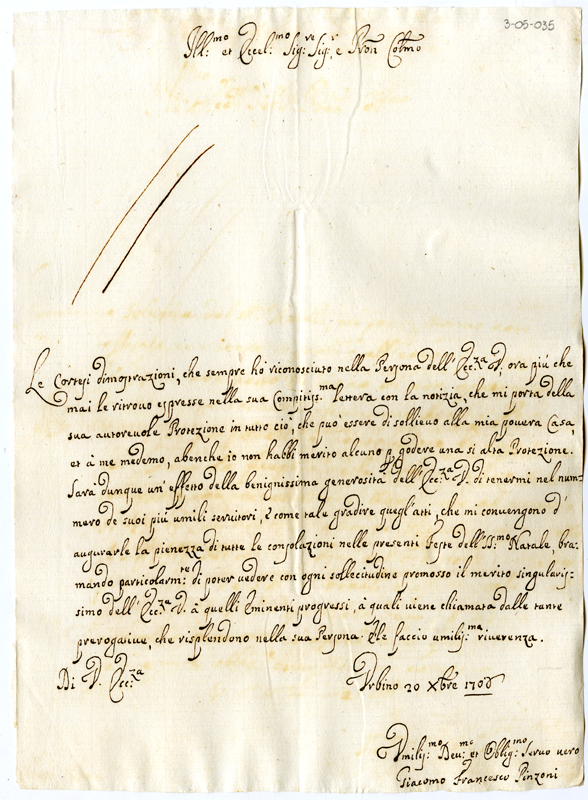 3-05-035
Ill:mo et Eccel:mo Sig:re Sig:r e Pron Colmo
Le Cortesi dimostrazioni, che sempre hò riconosciuto nella Persona dell' Ecc:za V. ora più che
mai le ritrovo espresse nella sua Compitiss:ma lettera con la notizia, che mi porta della
sua autorevole Protezione in tutto ciò, che può essere di sollievo alla mia povera Casa,
et à me medemo, abenche io non habbi merito alcuno p godere una si alta Protezione.
Sarà dunque un' effetto della benignissima generosità dell' Ecc:za V. di tenermi nel num=
mero de suoi più umili servitori, è come tale gradire quegl'atti, che mi convengono d'
augurarle la pienezza di tutte le consolazioni nelle presenti Feste dell' SS:mo Natale, bra=
mando particolarm:te di poter vedere con ogni sollecitudine promosso il merito singularis=
simo dell' Ecc:za V. à quelli Eminenti progressi, à quali viene chiamata dalle tante
prerogative, che risplendono nella sua Persona. E le faccio umiliss:ma riverenza.
Di V. Ecc:za
Urbino 20 Xbre 1706
Umiliss:mo Dev:mo et Oblig:mo Servo vero
Giacomo Francesco Pinzoni